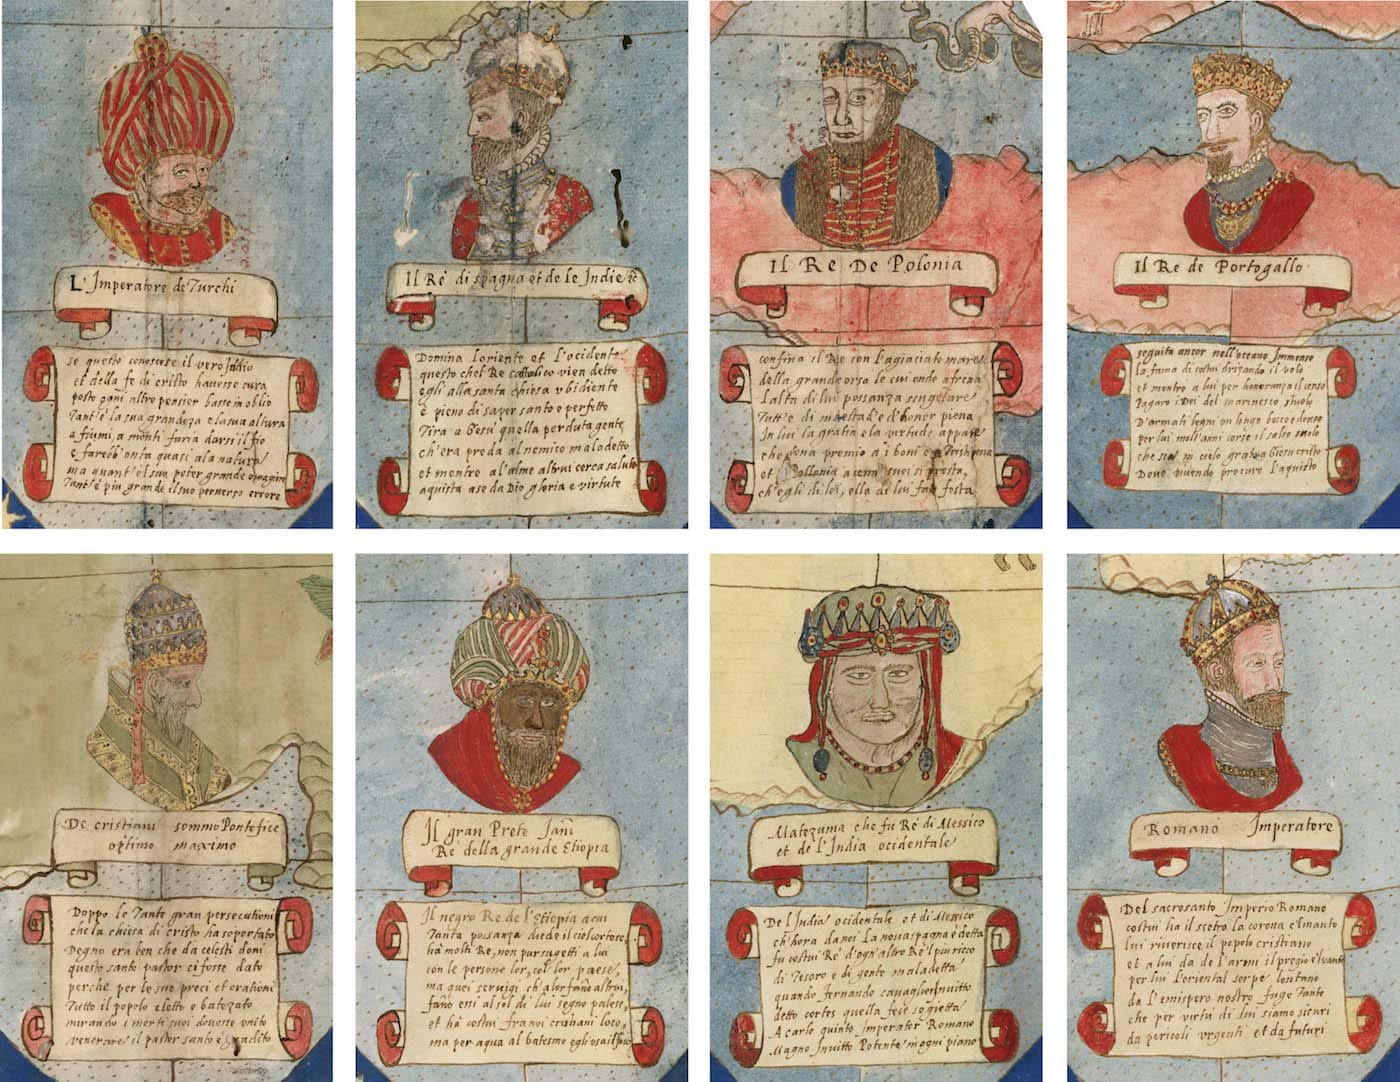 L'Imperatore de Turchi
se questo conoscese il vero Iddio
et della fe di cristo havesse cura
posto ogni altro pensier basso in oblio
Tant'è la sua grandeza e la sua altura
a fiumi, a monti faria darsi il fio
e farebb'onta quasi a la natura
ma quant'el suo poter grande
Tant'è piu grande el suo perverso errore
Il Rè di spagna et de le Indie &c
Domina loriente et l'occidente
questo chel Re cattolico vien detto
egli alla santa chiesa ubidiente
è pieno di saper santo e perfetto
Tira a Gesù quella perduta gente
ch'era preda al nemico maladetto
et mentre al'alme altrui cerca salute
aquista a se da Dio gloria e virtute
Il Re De Polonia
confina il Re con l'agiaciato mare
della grand'orsa le cui onde afrena
l'alta di lui possanza singolare
Tutt'è di maestade e d'honor piena
In lui la gratia e la virtude appare
che dona premio a i boni e a Tristi pena
et Pollonia a cenni suoi si prosta
ch'egli di lei, ella di lui fa
Il Re de Portogallo
seguita ancor nell'oceano Immenso
la fama di costui drizando il volo
et mentre a lui per honoranza il censo
Pagaro i Dei del marinesco stuolo
D'armati legni un longo bosco e denso
per lui molt'anni corse il salso suolo
che sia in cielo grato a Giesu cristo
Dove vivendo procuro l'aquisto
De cristiani sommo Pontefice
optimo maximo
Doppo le Tante gran persecutioni
che la chiesa di Cristo ha soportato
Degno era ben che da celesti doni
questo santo pastor ci fosse dato
perche per le sue preci et orationi
Tutto il popolo eletto e batezato
mirando i merti suoi dovesse unito
venerare il pastor santo e gradito
Il gran Prete Jani
Re della grande Etiopia
Il negro Re de l'Etiopia a cui
Tanta possanza diede il ciel cortese,
ha molti Re, non pur sugetti a lui
con le persone lor, col lor paese,
ma quei servigi ch'a lor fanno altrui,
fano essi al sol di lui segno palese,
et ha costui franchi cristiani loco,
ma per aqua al batesmo egli usa il foco
Matezuma che fu Rè di Messico
et de l'India ocidentale
Del India ocidentale et di Messico
ch'hora da noi La nova spagna è detta
fu costui Re d'ogn altro Re'l piu ricco
di Tesoro e di gente maladetta
quando Fernando cavaglier Invitto
detto cortes quella fece sogietta
A carlo quinto Imperator Romano
Magno Invitto Potente in ogni piano
Romano Imperatore
Del sacrosanto Imperio Romano
costui ha il scetro la corona e'l manto
lui riverisce il popolo cristiano
et a lui da de l'armi il pregio e'l vanto
per lui l'oriental serpe lontano
da l'emispero nostro fuge Tanto
che per virtù di lui siamo sicuri
da pericoli urgenti et da futuri